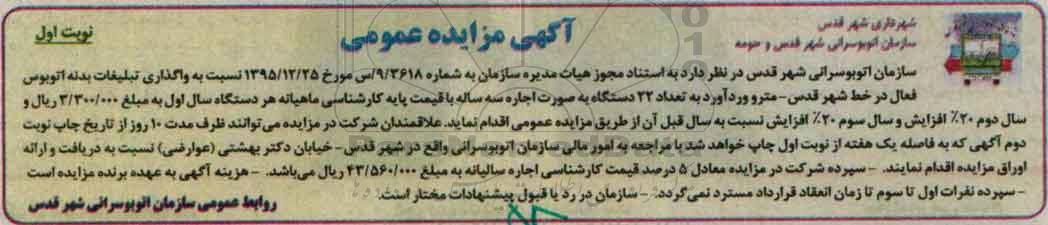 شهرداری شهر قدس
سازمان اتوبوسرانی شهر قدس و حومه
آگهی مزایده عمومی
نوبت اول
سازمان اتوبوسرانی شهر قدس در نظر دارد به استناد مجوز هیات مدیره سازمان به شماره ۹/۳۶۱۸/س مورخ ۱۳۹۵/۱۲/۲۵ نسبت به واگذاری تبلیغات بدنه اتوبوس
فعال در خط شهر قدس- مترو ورداورد به تعداد ۲۲ دستگاه به صورت اجاره سه ساله با قیمت پایه کارشناسی ماهیانه هر دستگاه سال اول به مبلغ ۳/۳۰۰/۰۰۰ ریال و
سال دوم ۲۰٪ افزایش و سال سوم ۲۰٪ افزایش نسبت به سال قبل آن از طریق مزایده عمومی اقدام نماید. علاقمندان شرکت در مزایده می توانند ظرف مدت ۱۰ روز از تاریخ چاپ نوبت
دوم آگهی که به فاصله یک هفته از نوبت اول چاپ خواهد شد با مراجعه به امور مالی سازمان اتوبوسرانی واقع در شهر قدس- خیابان دکتر بهشتی (عوارضی) نسبت به دریافت و ارائه
اوراق مزایده اقدام نمایند. - سپرده شرکت در مزایده معادل ۵ درصد قیمت کارشناسی اجاره سالیانه به مبلغ ۴۳/۵۶۰/۰۰۰ ریال می‌باشد. - هزینه آگهی به عهده برنده مزایده است
- سپرده نفرات اول تا سوم تا زمان انعقاد قرارداد مسترد نمی‌گردد. - سازمان در رد یا قبول پیشنهادات مختار است.
روابط عمومی سازمان اتوبوسرانی شهر قدس